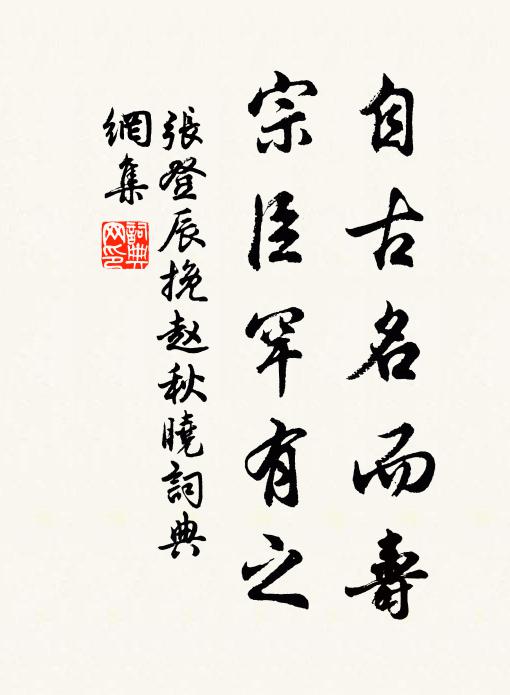 自古名而壽
宗臣罕有之
張登辰挽赵秋曉詞典
網集
詞典
网印